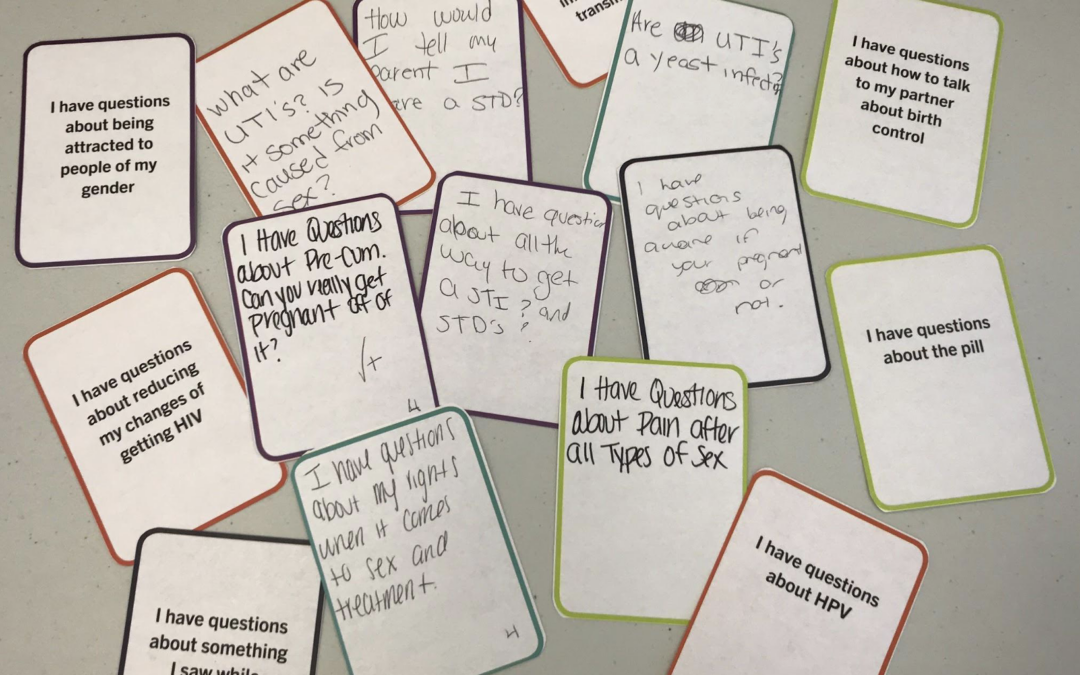 I have questions
about being
attracted to
people of my
gender
What are
UTI's? is
it something
caused from
sex?
How would
I tell my
parent I
a STD?
transm
Are UTI's
a yeast infect?
I have questions
about how to talk
to my partner
about birth
control
I Have Questions
about Pre-Cum.
Can you really get
Pregnant off of
it?
I have question
about all the
way to get
a STI? and
STD's?
I have
questions
about being
aware if
your pregnant
or
not.
I have questions
about the pill
I have questions
about reducing
my changes of
getting HIV
4
I have questions
about my rights
when it comes
to sex and
treatment.
4
I Have Questions
about Pain after
all Types of Sex
I have questions
about HPV
I have questions
about something
I saw while